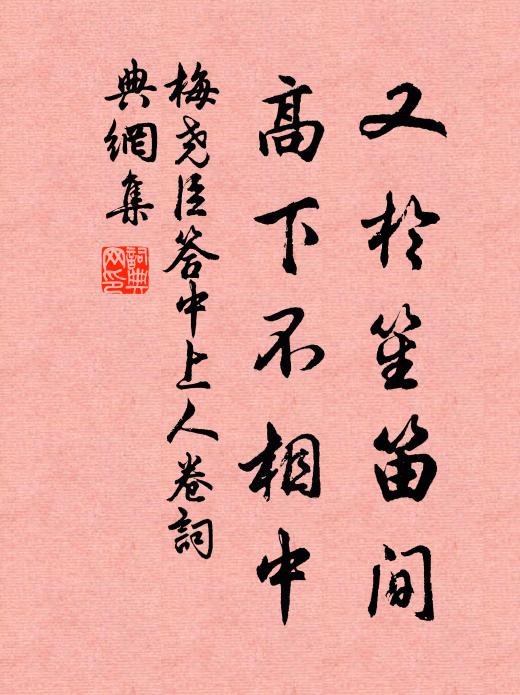 又於笙笛间
高下不相中
梅尧臣答中上人卷詞
典網集
詞典网印